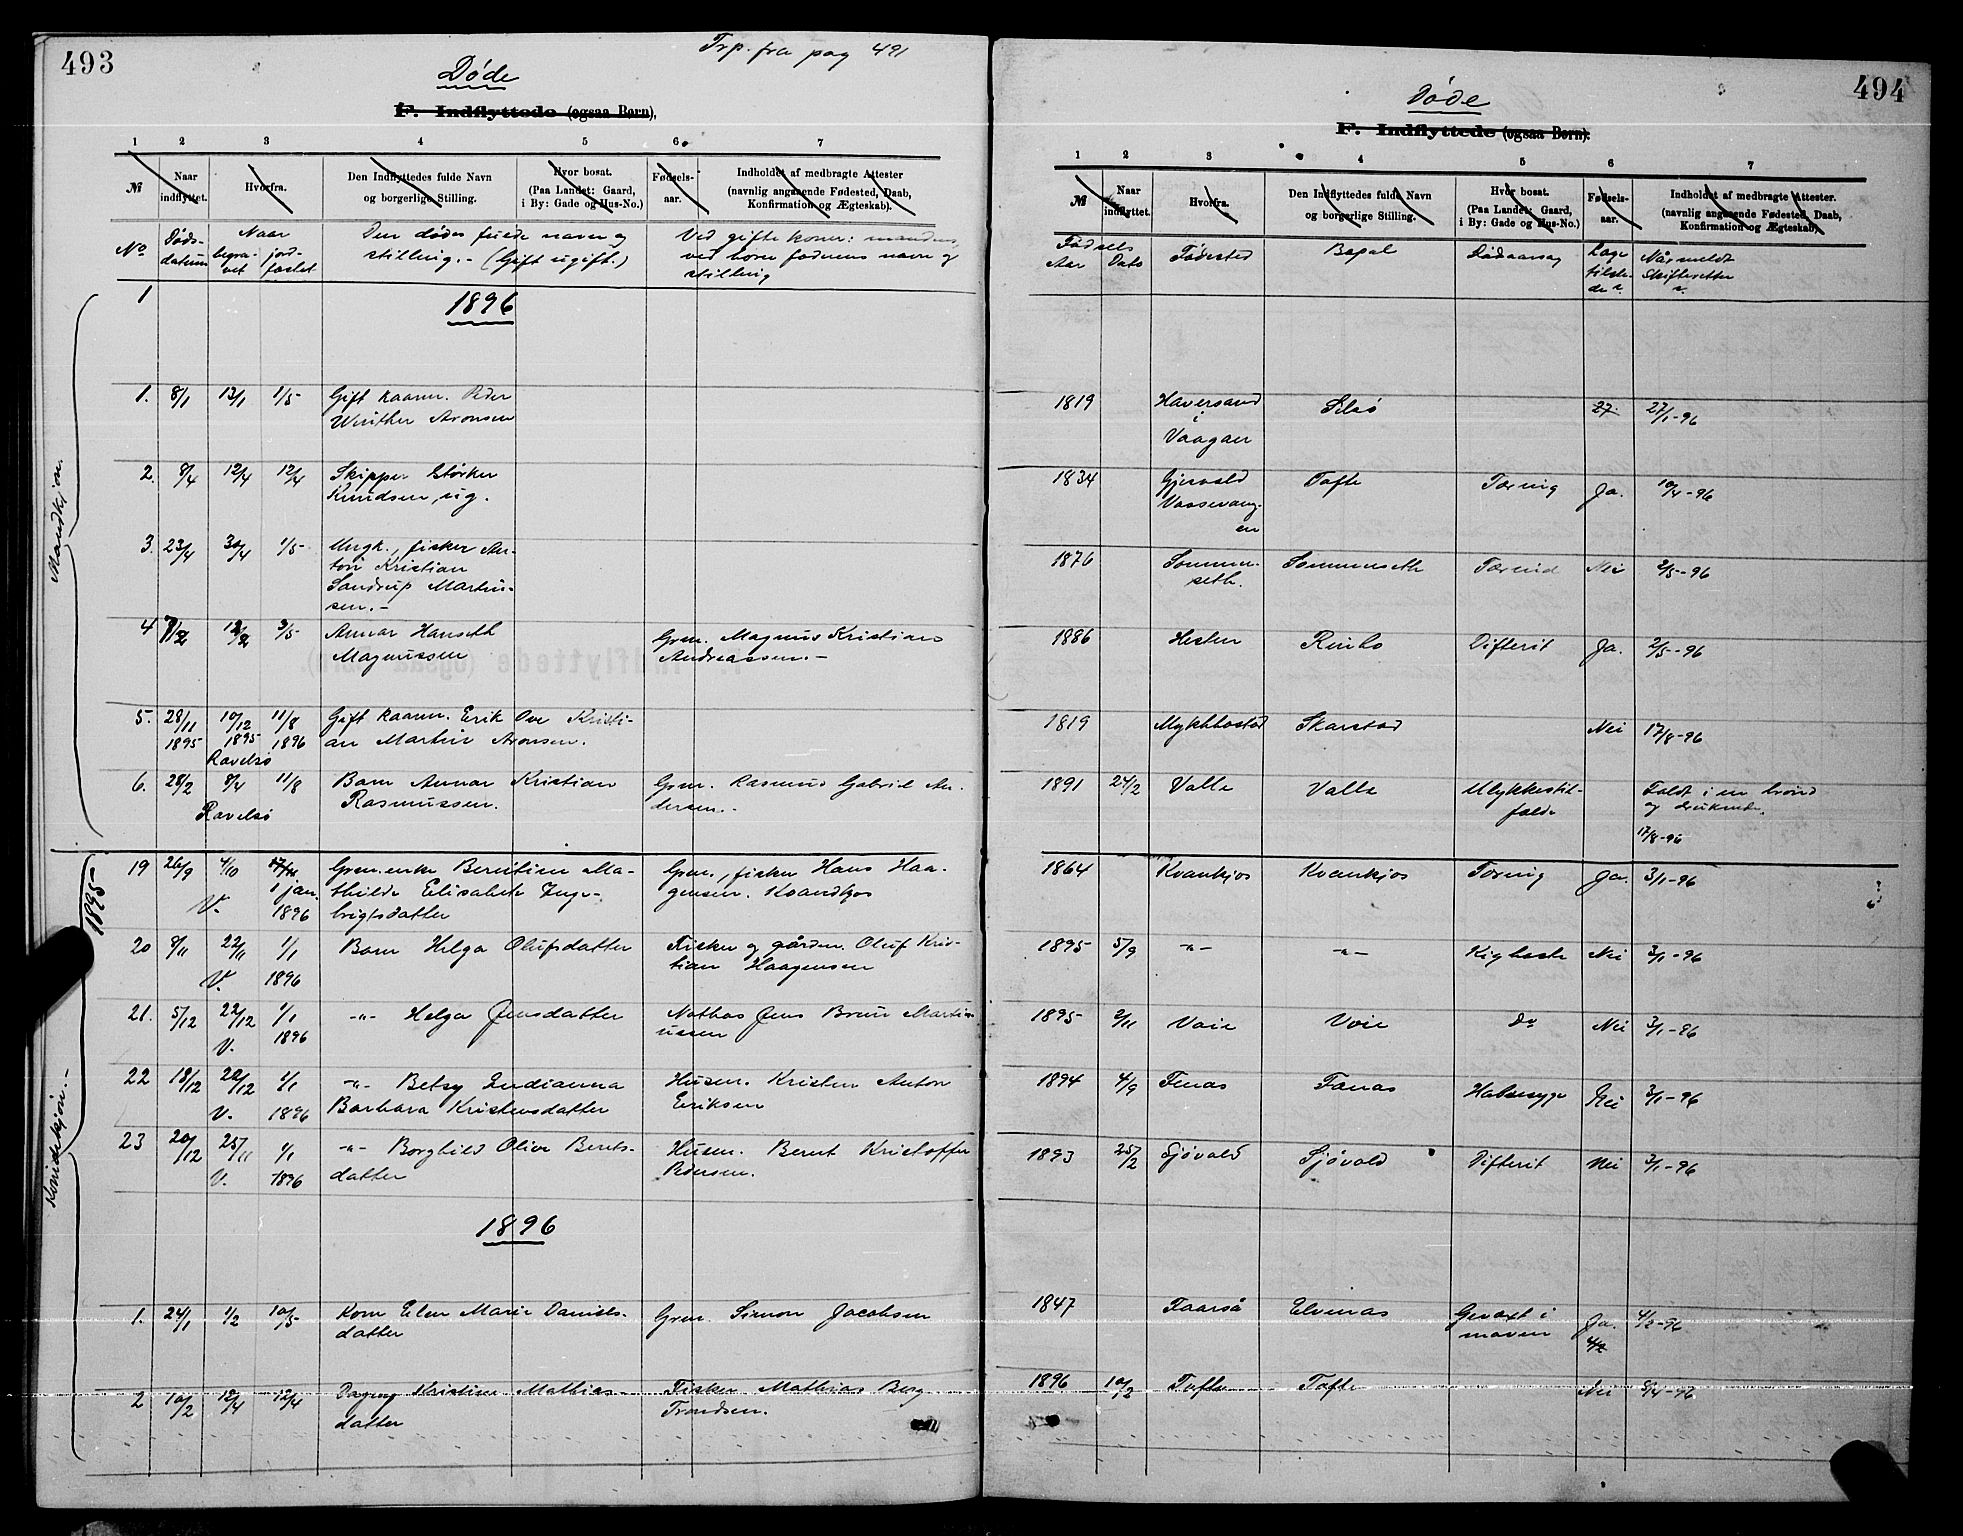 493
Trp. fra pag 491
Døde
F. Indflyttede (ogsaa Børn),
1 2 3 4 5 6 7
№
Naar indflyttet.
Hvorfra.
Den Indflyttedes fulde Navn
og borgerlige Stilling.
Hvor bosat.
(Paa Landet: Gaard,
i By: Gade og Hus-No.)
Fødsels-
aar.
Indholdet af medbragte Attester
(navnlig angaaende Fødested, Daab,
Konfirmation og Ægteskab).
No
Døds-
datum
Naar
begra-
vet
jord-
fæstet
Den dødes fulde navn og
stilling. - (Gift ugift.)
Ved gifte koner: mandens,
ved børn faderens navn og
stilling
Mandkjøn.
1
1896
1. 8/1 13/1 1/5 Gift kaarm. Peder
Winther Aronsen
2. 8/4 12/4 12/4 Skipper Størker
Knudsen, ug.
3. 23/4 30/4 1/5 Ungk., fisker An-
ton Kristian
Sandrup Martin-
sen. -
4 7/2 12/2 3/5 Annar Hanseth
Magnussen
Grm. Magnus Kristian
Andreassen. -
5. 28/11 10/12 11/8 Gift kaarm. Erik Ove Kristi-
1895 1895 1896 an Martin Aronsen.
Ravelsø
6. 28/2 8/4 11/8 Barn Annar Kristian
Rasmussen.
Grm. Rasmus Gabriel An-
dersen. -
Ravelsø
1895
Kvindekjøn. -
19 26/9 4/10 17/11 Grm.enke Berntine Ma-
1 jan. thilde Elisabete Inge-
V. 1896 brigtsdatter
Grm., fisker Hans Haa-
gensen. Kvandkjos
20 8/11 22/11 1/1 Barn Helga Olufsdatter
V. 1896
Fisker og gårdm. Oluf Kris-
tian Haagensen
21. 5/12 22/12 1/1 -"- Helga Jensdatter
V. 1896
Nothas Jens Bruun Martin
ussen
22 18/12 22/12 1/1 -"- Betsy Indianna
V. 1896 Barbara Kristensdatter
Husm. Kristen Anton
Eriksen
23 20/12 25/11 1/1 -"- Borghild Olive Bernts-
V. 1896 datter
Husm. Bernt Kristoffer
Pedersen.
1896
1. 24/1 1/2 10/5 Kone Elen Marie Daniels-
datter
Grm. Simon Jacobsen
2 10/2 12/4 12/4 Dagny Kristine Mathias-
datter
Fisker Mathias Berg
Trondsen.
494
Døde
F. Indflyttede (ogsaa Børn).
1 2 3 4 5 6 7
№
Naar
indflyttet.
Hvorfra.
Den Indflyttedes fulde Navn
og borgerlige Stilling.
Hvor bosat.
(Paa Landet: Gaard,
i By: Gade og Hus-No.)
Fødsels-
aar.
Indholdet af medbragte Attester.
(navnlig angaaende Fødested, Daab,
Konfirmation og Ægteskab).
Fødsels
Aar Dato
Fødested
Bopæl
Dødsaarsag
Læge
tilste-
de?
Når meldt
Skifteretten
?
1819 Haversand
i
Vaagan
Selsø 27 27/1-96
1834 Gjersvold
Vossevang-
en
Tofte Tæring Ja. 10/4-96
1876 Sommer-
seth.
Sommerseth Tæring Nei 2/5-96
1886 Hesten Reinlo Difterit Ja. 2/5-96
1819 Myklebostad Skarstad Nei 17/8-96
1891 24/2 Valle Valle Ulykkestil-
fælde
Faldt i en brønd
og druknede.
17/8-96
1864 Kvankjos Kvankjos Tæring Ja. 3/1-96
1895 5/9 -"- -"- Kighoste Nei 3/1-96
1895 2/11 Voie Voie do Nei 3/1-96
1894 4/9 Fenas Fænas Halssyge Nei 3/1-96
1893 25/2 Sjövold Sjövold Difterit Nei 3/1-96
1847 Faarså Elvenas Gevext i
maven
Ja.
4/2
4/2-96
1896 10/2 Tofte Tofte Nei 8/4-96